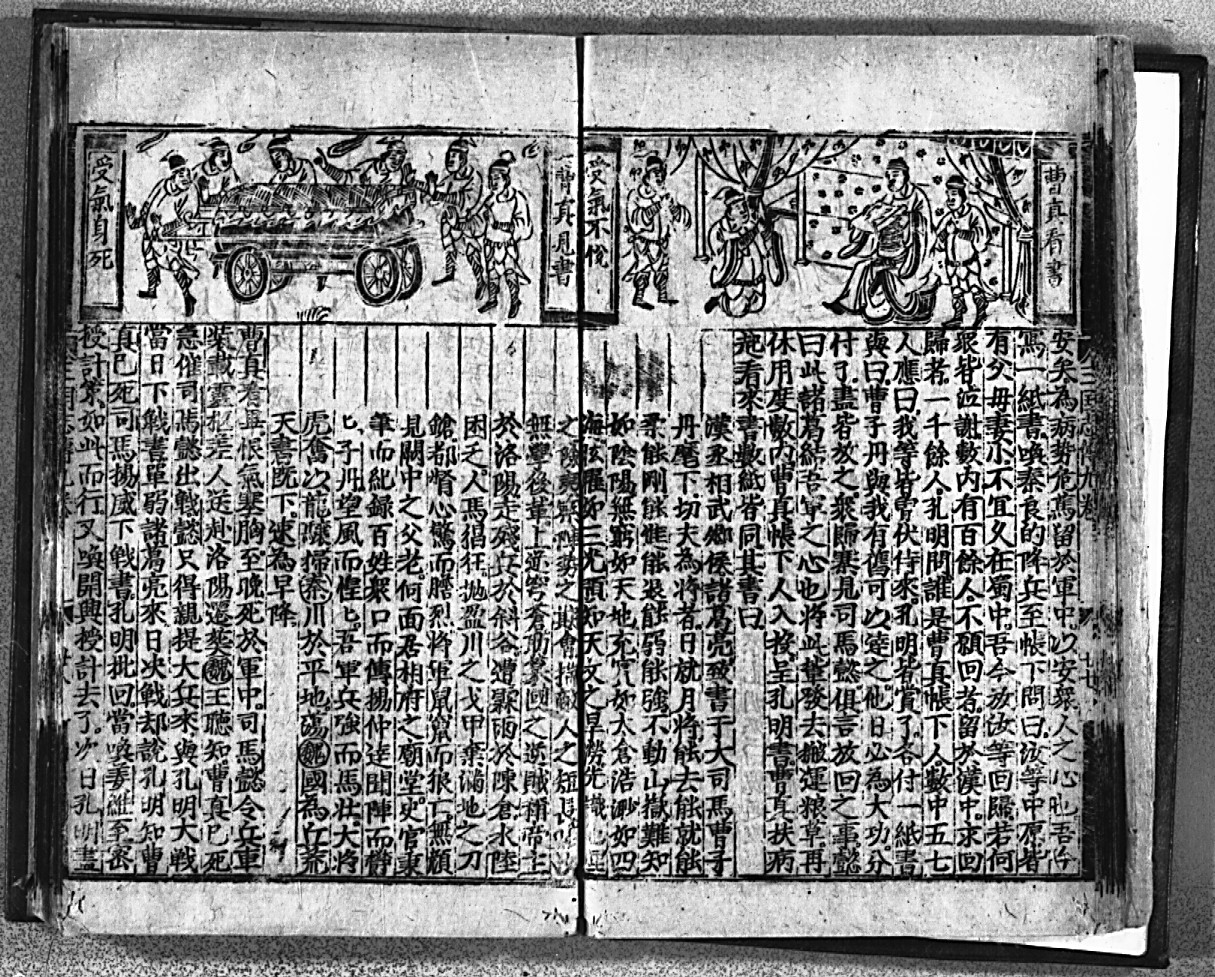 曹真看書
受氣不悅
安矣為病勢危篤留於軍中以安衆人之心也吾今
寫一紙書喚秦良的降兵至帳下問曰汝等中原者
有父母妻小不宜久在蜀中吾今放汝等回歸若何
衆皆泣謝數內有百餘人不願回者留於漢中求回
歸者一千餘人孔明問誰是曹真帳下人數中五七
人應曰我等皆曾伏侍來孔明皆賞了各付一紙書
與曰曹子丹與我有舊可以達之他日必為大功分
付了盡皆放之衆歸寨見司馬懿俱言放回之事懿
曰此諸葛結吾軍之心也將此輩發去搬運粮草再
休用度數內曹真帳下人入投呈孔明書曹真扶病
拖看來書數紙皆同其書曰
漢丞相武鄉侯諸葛亮致書于大司馬曹子
丹麾下切夫為將者日就月將能去能就能
柔能剛能進能退能弱能強不動山嶽難知
如陰陽無窮如天地充實如太倉浩渺如四
海眩曜如三光預知天文之旱澇先識
曹真見書
受氣身死
之陣勢之期會揣敵人之短長
無學後輩上逆穹蒼助篡國之逆賊稱帝王
於洛陽走殘兵於斜谷遭霖雨於陳倉水陸
困乏人馬猖狂拋盈川之戈甲棄滿地之刀
鎗都督心驚而膽烈將軍鼠竄而狼亡無顏
見關中之父老何面居相府之廟堂史官秉
筆而紀録百姓衆口而傳揚仲達聞陣而静
匕子丹望風而惶匕吾軍兵強而馬壯大將
虎奮以龍驤掃秦川於平地蕩魏國為丘荒
天書既下速為早降
曹真看畢恨氣塞胸至晚死於軍中司馬懿令兵車
裝載靈柩差人送赴洛陽遷葬魏王聽知曹真已死
急催司馬懿出戰懿只得親提大兵來與孔明大戰
當日下戰書單弱諸葛亮來日决戰却說孔明知曹
真已死司馬揚威下戰書孔明批回當喚姜維至密
授計策如此而行又喚開興授計去了次日孔明盡